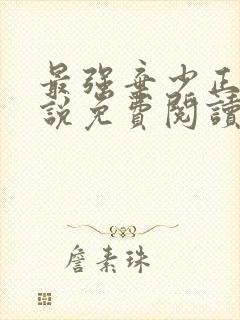 最强弃少正
說免費閱讀
詹素珠